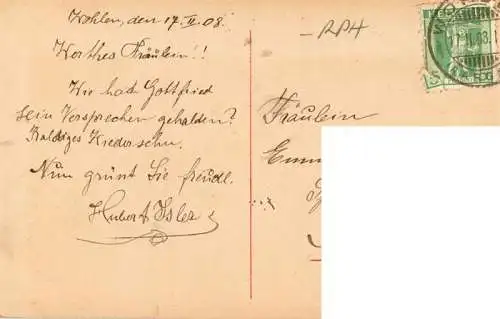 Wohlen, den 17. II. 08.
Werthes Fräulein!!
Wie hat Gottfried
sein Versprechen gehalden?
Baldiges Wiedersehn.
Nun grünt Sie freudl.
Hubert Isler
RP4
Fräulein
5